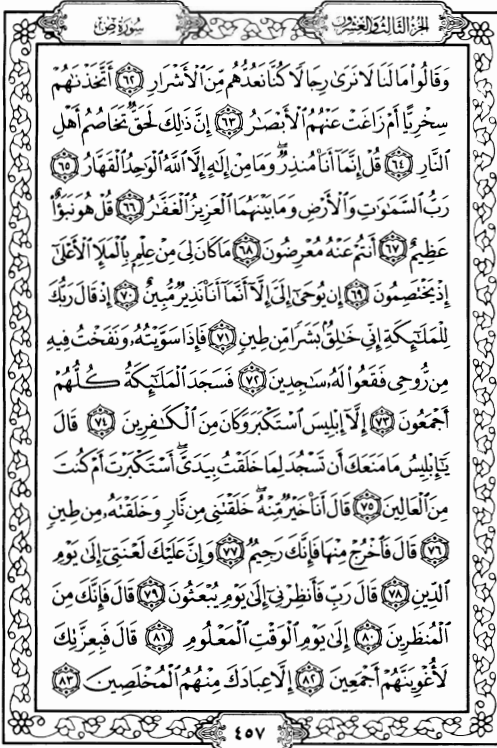 سُورَةُ صٓ
الجُزءُ الثَّالِثُ وَالعِشْرُونَ
وَقَالُوا۟ مَا لَنَا لَا نَرَىٰ رِجَالًا كُنَّا نَعُدُّهُم مِّنَ ٱلْأَشْرَارِ ٦٢ أَتَّخَذْنَـٰهُمْ
سِخْرِيًّا أَمْ زَاغَتْ عَنْهُمُ ٱلْأَبْصَـٰرُ ٦٣ إِنَّ ذَٰلِكَ لَحَقٌّ تَخَاصُمُ أَهْلِ
ٱلنَّارِ ٦٤ قُلْ إِنَّمَآ أَنَا۠ مُنذِرٌ ۖ وَمَا مِنْ إِلَـٰهٍ إِلَّا ٱللَّهُ ٱلْوَٰحِدُ ٱلْقَهَّارُ ٦٥
رَبُّ ٱلسَّمَـٰوَٰتِ وَٱلْأَرْضِ وَمَا بَيْنَهُمَا ٱلْعَزِيزُ ٱلْغَفَّـٰرُ ٦٦ قُلْ هُوَ نَبَؤٌا۟
عَظِيمٌ ٦٧ أَنتُمْ عَنْهُ مُعْرِضُونَ ٦٨ مَا كَانَ لِىَ مِنْ عِلْمٍۭ بِٱلْمَلَإِ ٱلْأَعْلَىٰٓ
إِذْ يَخْتَصِمُونَ ٦٩ إِن يُوحَىٰٓ إِلَىَّ إِلَّآ أَنَّمَآ أَنَا۠ نَذِيرٌ مُّبِينٌ ٧٠ إِذْ قَالَ رَبُّكَ
لِلْمَلَـٰٓئِكَةِ إِنِّى خَـٰلِقٌۢ بَشَرًا مِّن طِينٍ ٧١ فَإِذَا سَوَّيْتُهُۥ وَنَفَخْتُ فِيهِ
مِن رُّوحِى فَقَعُوا۟ لَهُۥ سَـٰجِدِينَ ٧٢ فَسَجَدَ ٱلْمَلَـٰٓئِكَةُ كُلُّهُمْ
أَجْمَعُونَ ٧٣ إِلَّآ إِبْلِيسَ ٱسْتَكْبَرَ وَكَانَ مِنَ ٱلْكَـٰفِرِينَ ٧٤ قَالَ
يَـٰٓإِبْلِيسُ مَا مَنَعَكَ أَن تَسْجُدَ لِمَا خَلَقْتُ بِيَدَىَّ ۖ أَسْتَكْبَرْتَ أَمْ كُنتَ
مِنَ ٱلْعَالِينَ ٧٥ قَالَ أَنَا۠ خَيْرٌ مِّنْهُ ۖ خَلَقْتَنِى مِن نَّارٍ وَخَلَقْتَهُۥ مِن طِينٍ
٧٦ قَالَ فَٱخْرُجْ مِنْهَا فَإِنَّكَ رَجِيمٌ ٧٧ وَإِنَّ عَلَيْكَ لَعْنَتِىٓ إِلَىٰ يَوْمِ
ٱلدِّينِ ٧٨ قَالَ رَبِّ فَأَنظِرْنِىٓ إِلَىٰ يَوْمِ يُبْعَثُونَ ٧٩ قَالَ فَإِنَّكَ مِنَ
ٱلْمُنظَرِينَ ٨٠ إِلَىٰ يَوْمِ ٱلْوَقْتِ ٱلْمَعْلُومِ ٨١ قَالَ فَبِعِزَّتِكَ
لَأُغْوِيَنَّهُمْ أَجْمَعِينَ ٨٢ إِلَّا عِبَادَكَ مِنْهُمُ ٱلْمُخْلَصِينَ ٨٣
٤٥٧